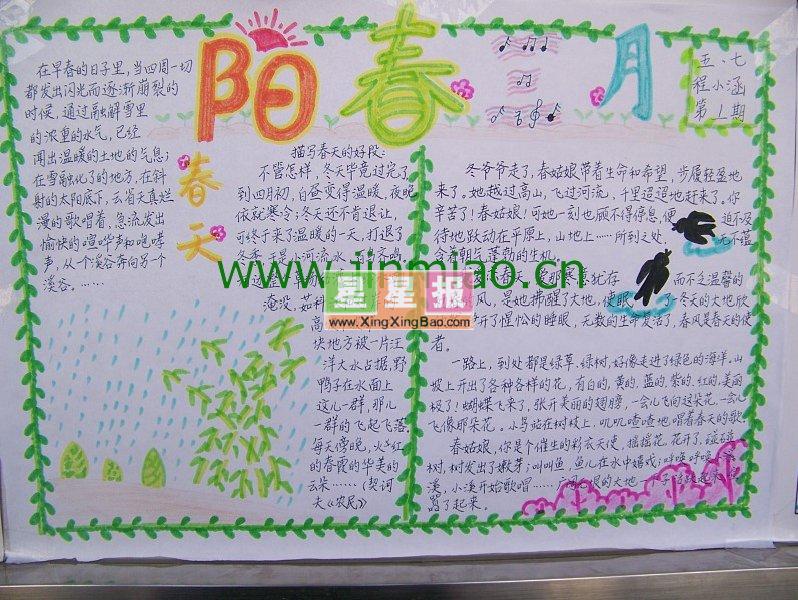 阳春
月
五、七
程小涵
第1期
在早春的日子里,当四周一切
都发出闪光而逐渐崩裂的
时候,通过融解雪里
的浓重的水气,已经
闻出温暖的土地的气息;
在雪融化了的地方,在斜
射的太阳底下,云雀天真烂
漫的歌唱着,急流发出
愉快的喧哗声和咆哮
声,从一个溪谷奔向另一个
溪谷。……
春天
描写春天的好段:
不管怎样,冬天毕竟过完了
到四月初,白昼变得温暖,夜晚
依就寒冷;冬天还不肯退让,
可终于来了温暖的一天,打退了
冬季
淹没,茹科
块地方被一片汪
洋大水占据,野
鸭子在水面上
这儿一群,那儿
一群的飞起飞落
每天傍晚,火红
的春霞的华美的
云朵……(契诃
夫《农民》)
冬爷爷走了,春姑娘带着生命和希望,步履轻盈地
来了。她越过高山,飞过河流,千里迢迢地赶来了。你
辛苦了!春姑娘!可她一刻也顾不得停息,便迫不及
待地跃动在平原上,山地上……所到之处,无不蕴
含着朝气蓬勃的生机。
犹存 而不乏温馨的
风,是她拂醒了大地,使眠 了冬天的大地欣
开了惺忪的睡眼,无数的生命复活了,春风是春天的使
者。
一路上,到处都是绿草、绿树,好像走进了绿色的海洋。山
坡上开出了各种各样的花,有白的、黄的、蓝的、紫的、红的、美丽
极了!蝴蝶飞来了,张开美丽的翅膀,一会儿飞向这朵花,一会儿
飞像那朵花。小鸟站在树枝上,叽叽喳喳地唱着春天的歌。
春姑娘,你是个催生的彩衣天使,摇摇花,花开了,碰碰
树,树发出了嫩芽;叫叫鱼,鱼儿在水中嬉戏;
溪,小溪开始歌唱……
了起来。
www.jinmiao.cn
星星报
www.XingXingBao.com